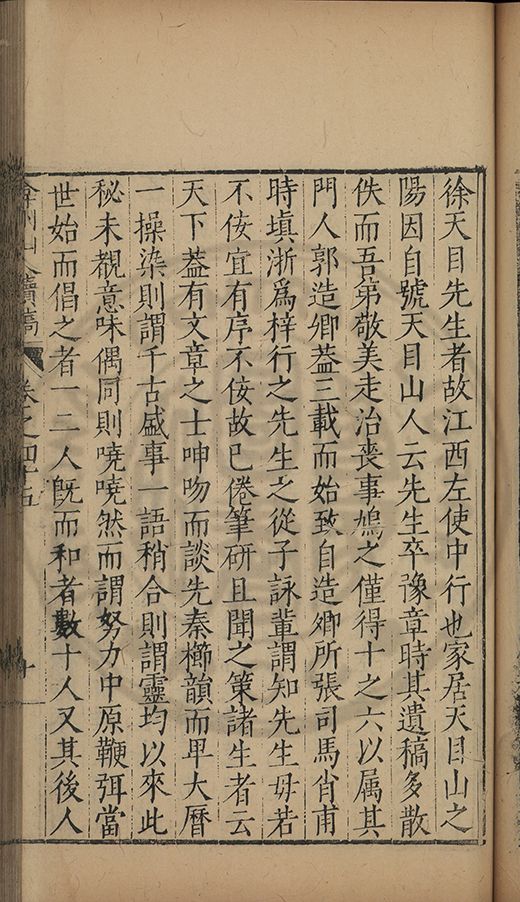 徐天目先生者故江西左使中行也家居天目山之
陽因自號天目山人云先生卒豫章時其遺稿多散
佚而吾弟敬美走治喪事鳩之僅得十之六以属其
門人郭造卿葢三載而始致自造卿所張司馬肖甫
時塡浙爲梓行之先生之從子詠輩謂知先生毋若
不佞宜有序不佞故已倦筆研且聞之策諸生者云
天下葢有文章之士呻吻而談先秦櫛韻而卑大曆
一操染則謂千古盛事一語稍合則謂靈均以來此
秘未覩意味偶同則嘵嘵然而謂努力中原鞭弭當
世始而倡之者一二人旣而和者數十人又其後人
弇州山人續稿 卷之四十五 十